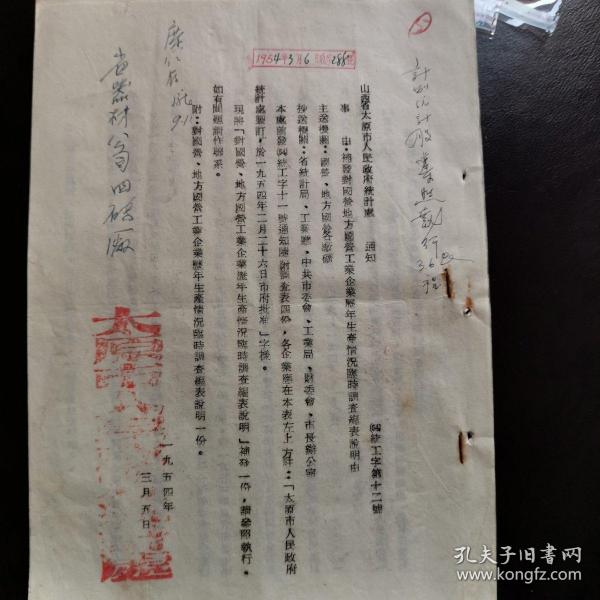 1954年3月6
山西省太原市人民政府統計處 通知
㈣統工字第十二號
事 由:補發對國營地方國營工業企業歷年生產情況臨時調查總表說明由
主送機關:國營、地方國營各廠礦
抄送機關:省統計局、工業廳、中共市委會、工業局、財委會、市長辦公室
本處前發㈣統工字十一號通知隨附調查表四份,各企業應在本表左上方註:「太原市人民政府
統計處製訂,於一九五四年二月二十六日市府批准」字樣。
現將「對國營、地方國營工業企業歷年生產情況臨時調查總表說明」補發一份,請參照執行。
如有問題請作聯系。
附:對國營、地方國營工業企業歷年生產情況臨時調查總表說明一份。
一九五四年
三月五日
省器材公司四磚廠
孔夫子旧书网
www.kongfz.com